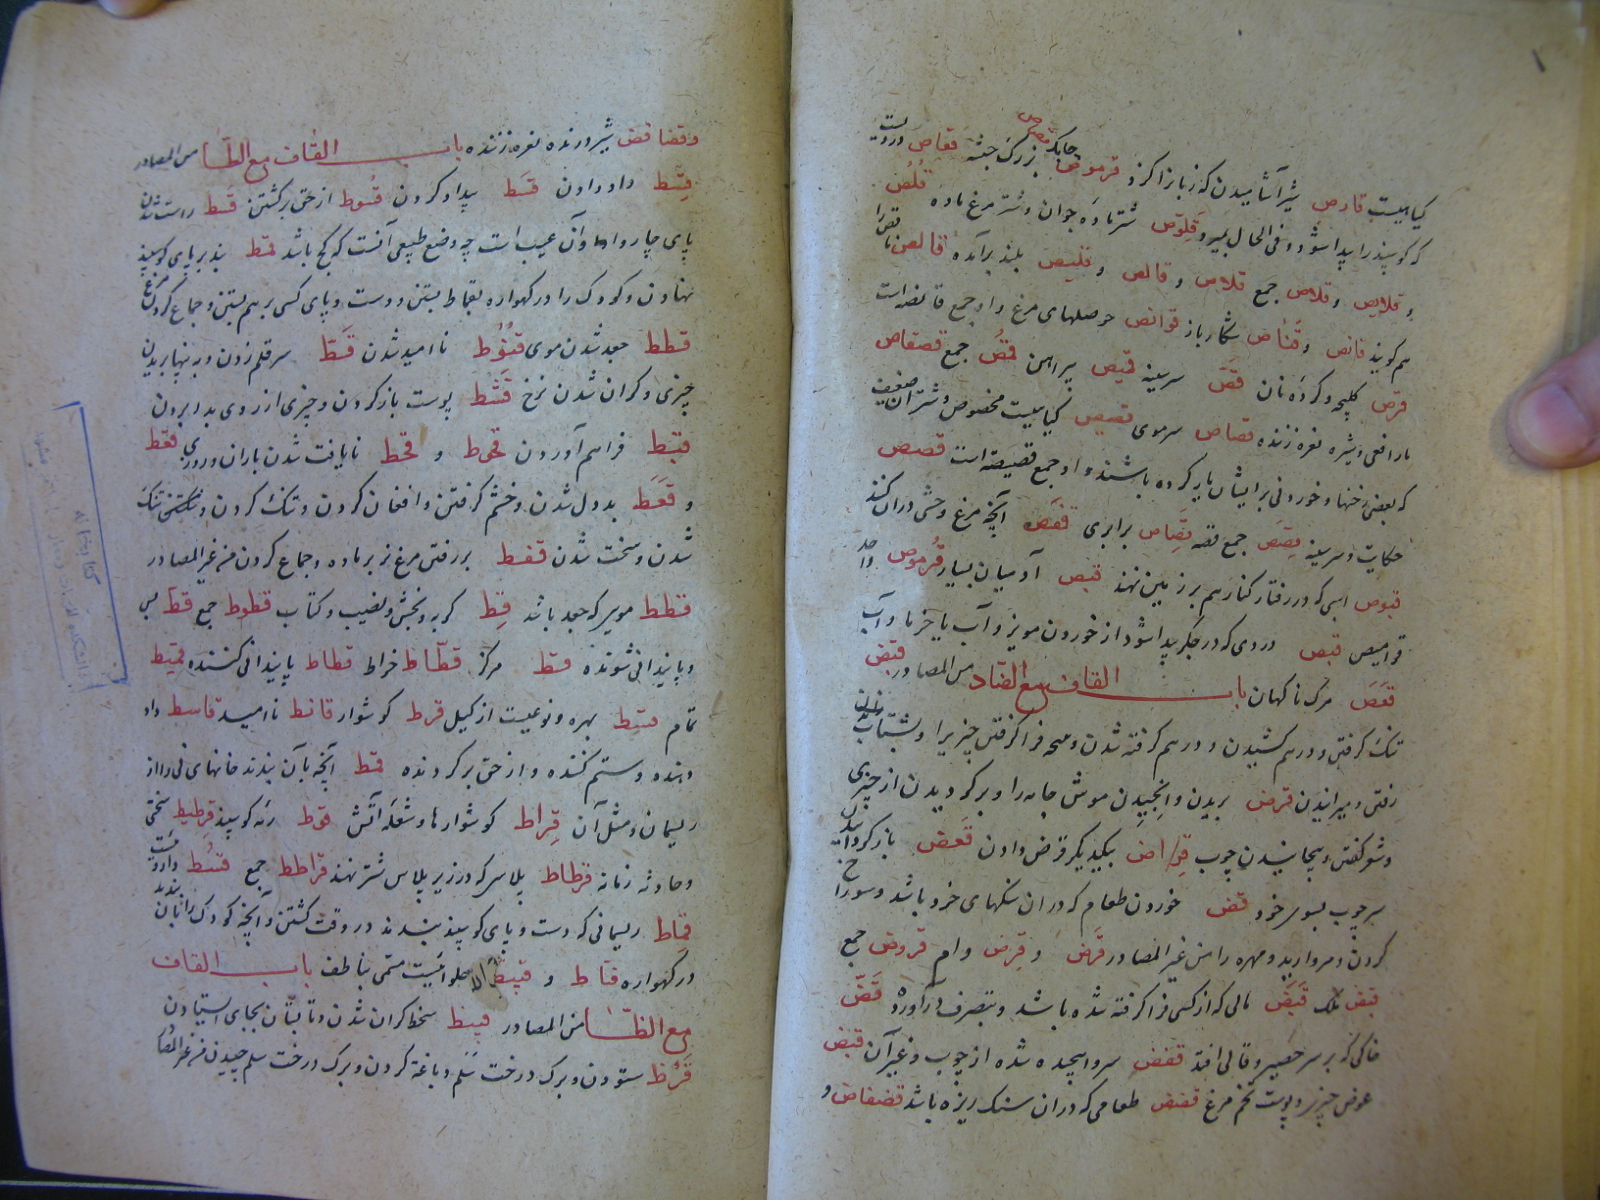 گیاهیست قارص شیر آشامیدن که زبانرا گزد قرموص بزرک جثه قعاص دردیست
که گوسپند را پیدا شود و فی الحال بمیرد قلوص شتر ماده جوان و شتر مرغ ماده قلص
و قلایص و قلاص جمع قلاص و قالص و قلیص بلند برآمده قالص
هم گویند قانص و قناص شکار باز قوانص حوصلهای مرغ و او جمع قانصه است
قرص کلیچه و کرده نان قص سر سینه قمیص پیراهن قمص جمع قصقاص
مار افعی و شیر نعره زننده قصاص سر موی قصیص گیاهیست مخصوص
که بعضی رختها و خوردنی بر ایشان بار کرده باشند و او جمع قصیصه است قصص
حکایت و سر سینه قصص جمع قصه قصاص برابری قفص آنچه مرغ وحشی دران کنند
قبوص اسپی که در رفتار کنار سم بر زمین نهند قبص آدمیان بسیار قرموص واحد
قرامیص قبص دردی که در جگر پیدا شود از خوردن مویز و آب یا خرما و آب
قعص مرک ناکهان باب القاف مع الضاد من المصادر قبض
تنک گرفتن و درهم کشیدن و درهم گرفته شدن و پنجه فرا گرفتن چیزیرا و بشتاب
رفتن و میرانیدن قرض بریدن و انجیدن موش جامه را و برگردیدن از چیزی
و شعر گفتن و پیچانیدن چوب قراض بیکدیگر قرض دادن قعض باز گردانیدن
سر چوب بسوی خود قض خوردن طعام که دران سنکهای خرد باشد و سوراخ
کردن و مروارید و مهره را من غیر المصادر قرض و قرض وام قروض جمع
قبض ملک قبض مالی که از کسی فرا گرفته شده باشد و بتصرف درآورده قض
خاکی که بر سر حصیر و قالی افتد قعض سر و اپیچده شده از چوب و غیر آن قیض
عوض چیز و پوست تخم مرغ قضض طعامی که دران سنک ریزه باشد قضقاض و
و قضاقض شیر درنده نعره زننده باب القاف مع الطا من المصادر
قسط داد دادن قسط بیداد کردن قسوط از حق برگشتن قسط راست شدن
پای چاروا و آن عیب است چه وضع طبیعی آنست که کج باشد قمط بند بر پای گوسپند
نهادن و کودک را در گهواره بقماط بستن و دست و پای کسی بر هم بستن و جماع کردن مرغ
قطط جعد شدن موی قنوط ناامید شدن قط سر قلم زدن و به پهنا بریدن
چیزی و گران شدن نرخ قشط پوست باز کردن و چیزی از روی بدر بردن
قبط فراهم آوردن قحوط و قحط نایافت شدن باران و روزی قعط
و قعط بد دل شدن و خشم گرفتن و افغان کردن و تنک کردن
شدن و سخت شدن قفط بر رفتن مرغ نر بر ماده و جماع کردن من غیر المصادر
قطط مویی که جعد باشد قط گربه و بخش و نصیب و کتاب قطوط جمع قط بس
و پایندانی شونده قط هرگز قطاط خراط قطاط پایندانی کننده قمیط
تمام قسط بهره و نوعیست از کیل قرط گوشوار قانط ناامید قاسط داد
دهنده و ستم کننده و از حق برگردنده قمط آنچه بآن بندند خانهای نی را از
ریسمان و مثل آن قراط گوشوارها و شعله آتش قوط رمه گوسپند قرطیط سختی
و حادثه زمانه قرطاط پلاسی که در زیر پلاس شتر نهند قراطط جمع قسط داروییست
قماط ریسمانی که دست و پای گوسپند بندند در وقت کشتن و آنچه کودک را بآن بندند
در گهواره قباط و قبیط حلوائیست مسمی بناطف باب القاف
مع الظا من المصادر قیظ سخت گران شدن و تابستان بجای ایستادن
قرظ ستودن و برک درخت سلم دباغة کردن و برک درخت سلم چیدن من غیر المصادر